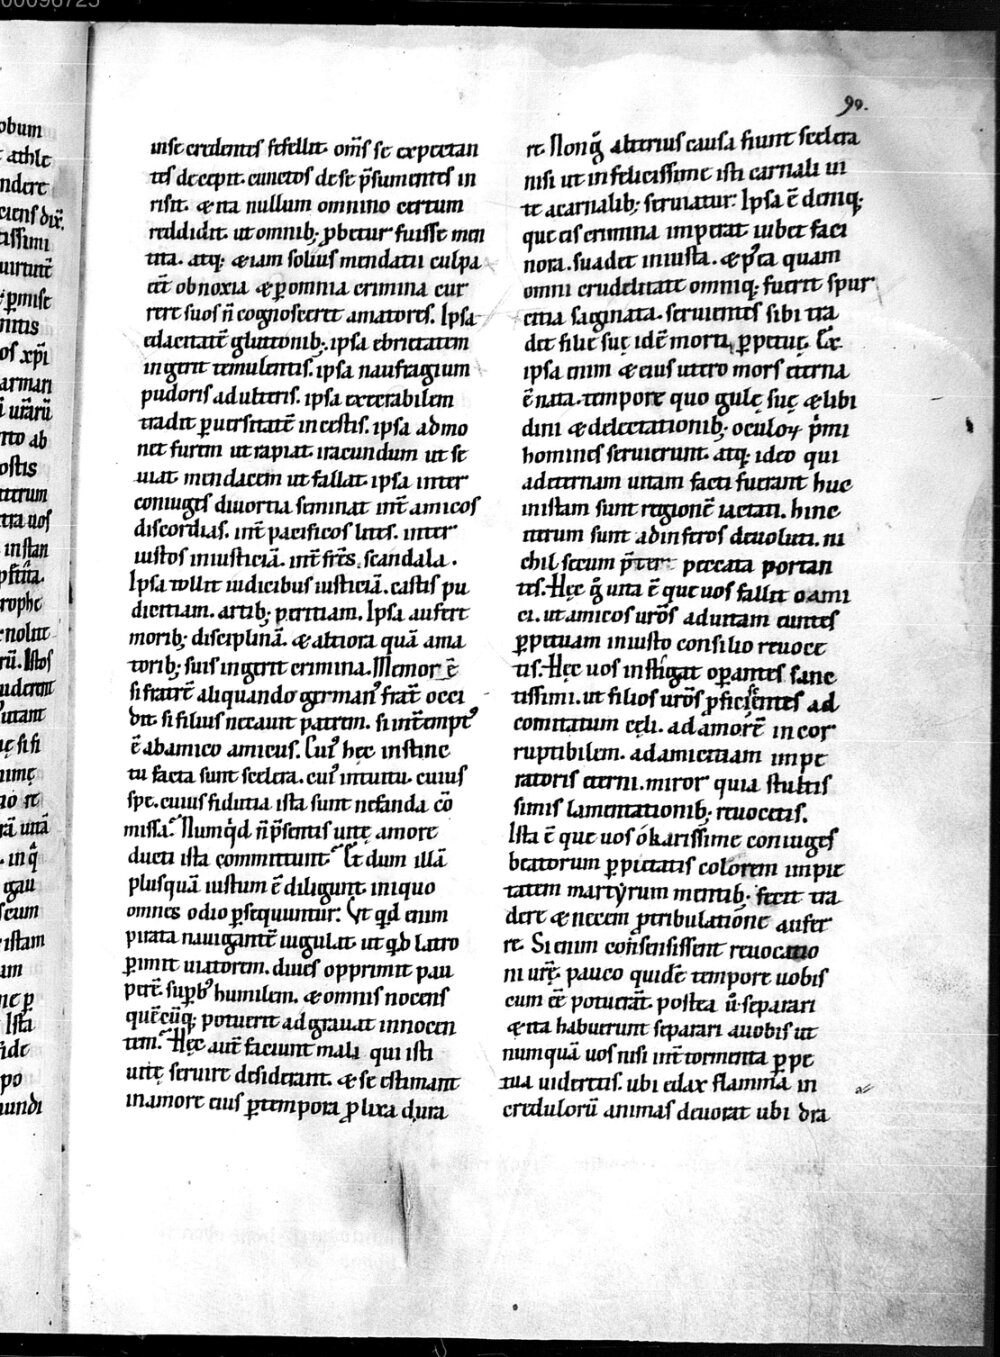 obum
athle
ndere
ciens dix̄.
tissimi
uirtutē
p̱misc
nnus
os xp̄i
arman
ī urārū
rto ab
ostis
terum
tra uos
instan
rophe
nolut
rū. Istos
uderent
utant
himę
rā unā
. in q̄
gau
seum
istam
am
ne p̱
Ista
ide
po
undi
99.
in se credentes fefellit. om̄s se expectan
tes decepit. cunctos de se p̄sumentes in
risit. & ita nullum omnino certum
reddidit. ut omnib; p̱betur fuisse men
tita. atq; etiam solius mendatii culpa
eēt obnoxia & p̱ omnia crimina cur
rere suos n̄ cognosceret amatores. Ipsa
edacitatē gluttonib;. ipsa ebrietatem
ingerit temulentis. ipsa naufragium
pudoris adulteris. ipsa execrabilem
tradit p̱uersitatē incestis. ipsa admo
net furem ut rapiat. iracundum ut se
uiat. mendacem ut fallat. ipsa inter
coniuges diuortia seminat. int̄ amicos
discordias. int̄ pacificos lites. inter
iustos iniusticiā. int̄ fr̄es scandala.
Ipsa tollit iudicibus iusticiā. castis pu
dicitiam. artib; peritiam. Ipsa aufert
morib; disciplinā. & altiora quā ama
torib; suis ingerit crimina. Memor ē
si fratrē aliquando german' frat̄ occi
dit. si filius necauit patrem. si int̄empt'
ē ab amico amicus. Cui' hęc instinc
tu facta sunt scelera. cui' intuitu. cuius
spe. cuius fidutia ista sunt nefanda cō
missa? Numq̇d n̄ p̄sentis uitę amore
ducti ista committunt? Et dum illā
plusquā iustum ē diligunt. iniquo
omnes odio p̱sequuntur. Vt qd enim
pirata nauigantē iugulat. ut qd latro
p̱imit uiatorem. diues opprimit pau
perē. sup̱b' humilem. & omnis nocens
quēcūq; potuerit adgrauat innocen
tem. Hęc autē faciunt mali qui isti
uitę seruire desiderant. & se estimant
in amore eius p̱ tempora p̱lixa dura
re. Non ḡ alterius causa fiunt scelera
nisi ut infelicissime isti carnali ui
tę a carnalib; seruiatur. Ipsa ē deniq;
que eis crimina imperat. iubet faci
nora. suadet iniusta. & p'ea quam
omni crudelitate omniq; fuerit spur
citia saginata. seruientes sibi tra
det filię suę idē morti p̱petuę. Ex
ipsa enim & eius utero mors eterna
ē nata. tempore quo gulę suę & libi
dini & delectationib; oculoꝝ p̄mi
homines seruierunt. atq; ideo qui
ad eternam uitam facti fuerant huc
in istam sunt regionē iactati. hinc
iterum sunt ad inferos deuoluti. ni
chil secum p̄ter peccata portan
tes. Hęc ḡ uita ē que uos fallit o ami
ci. ut amicos ur̄os ad uitam euntes
p̱petuam iniusto consilio reuoce
tis. Hęc uos instigat o parentes sanc
tissimi. ut filios ur̄os p̱ficiscentes ad
comitatum cęli. ad amorē incor
ruptibilem. ad amicitiam impe
ratoris eterni. miror quia stultis
simis lamentationib; reuocetis.
Ista ē que uos ó karissime coniuges
beatorum p̱ pietatis colorem impie
tatem martyrum mentib; fecit tra
dere & necem p̱ tribulatione aufer
re. Si enim consensissent reuocatio
ni ur̄ę pauco quidē tempore uobis
cum eē potuerāt. postea ū separari
& ita habuerunt separari a uobis ut
numquā uos nisi int̄ tormenta p̱pe
tua uideretis. ubi edax flamma in
credulorū animas deuorat. ubi dra